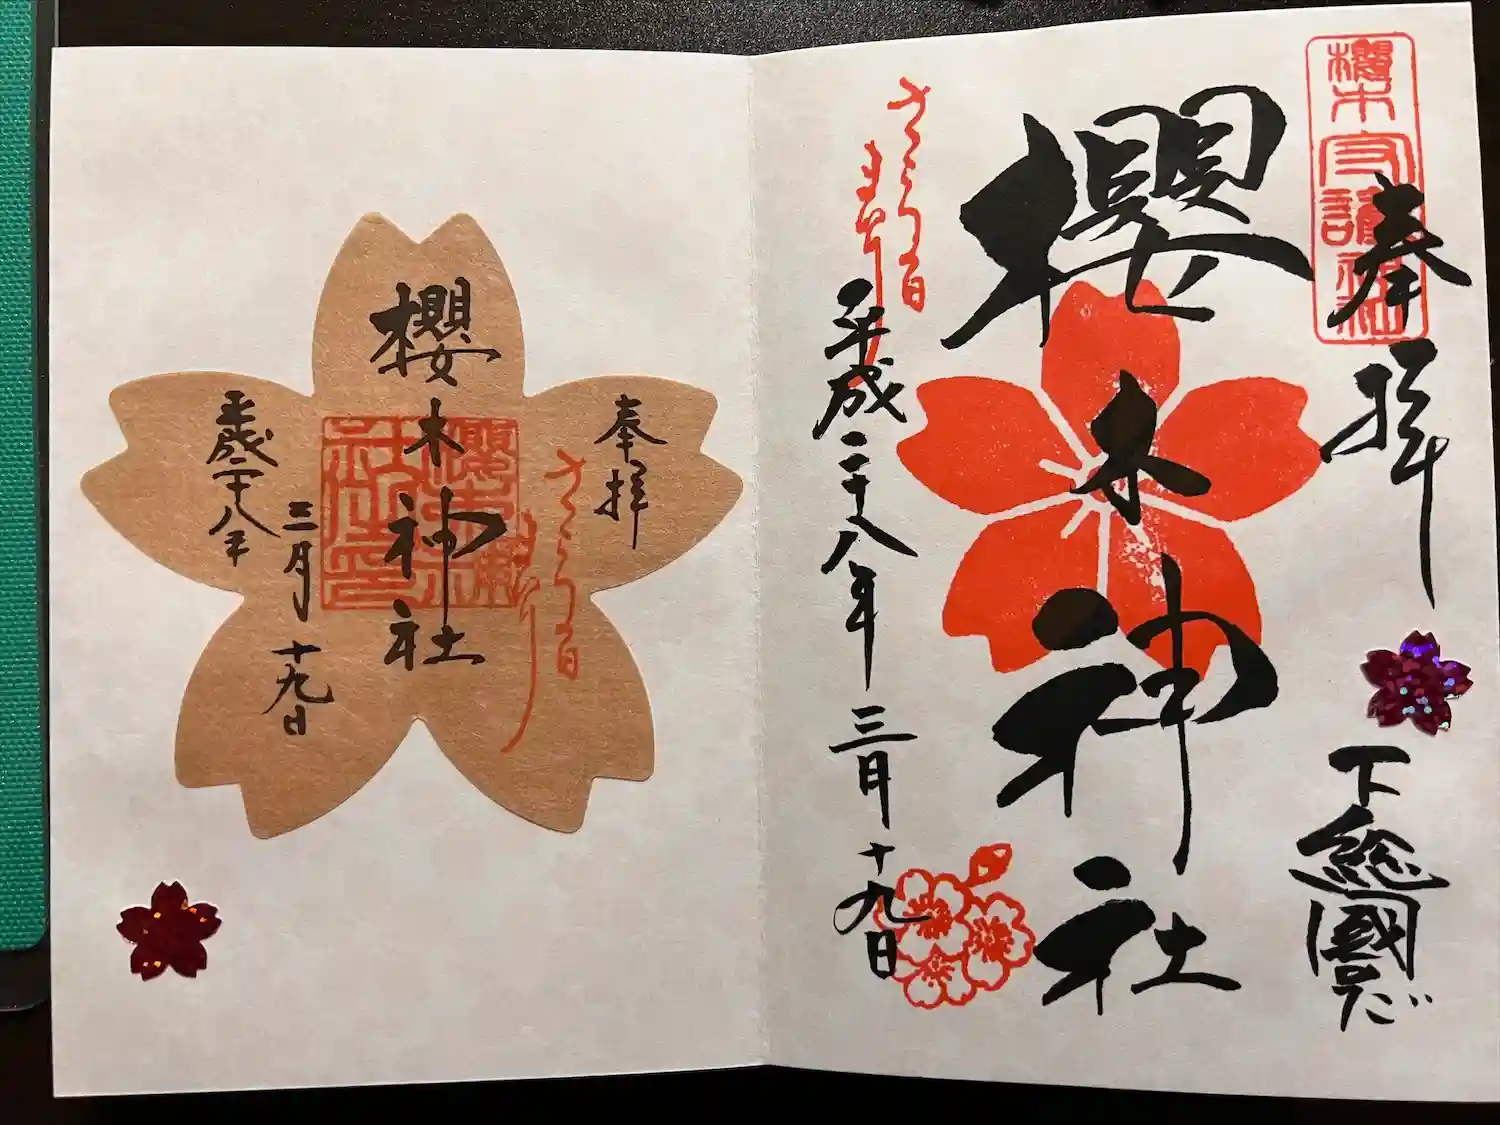 奉拝
下総國のだ
櫻木神社
さくらの日
まいり
平成二十八年 三月十九日
奉拝
さくらの日
まいり
櫻木神社
平成二十八年
三月十九日